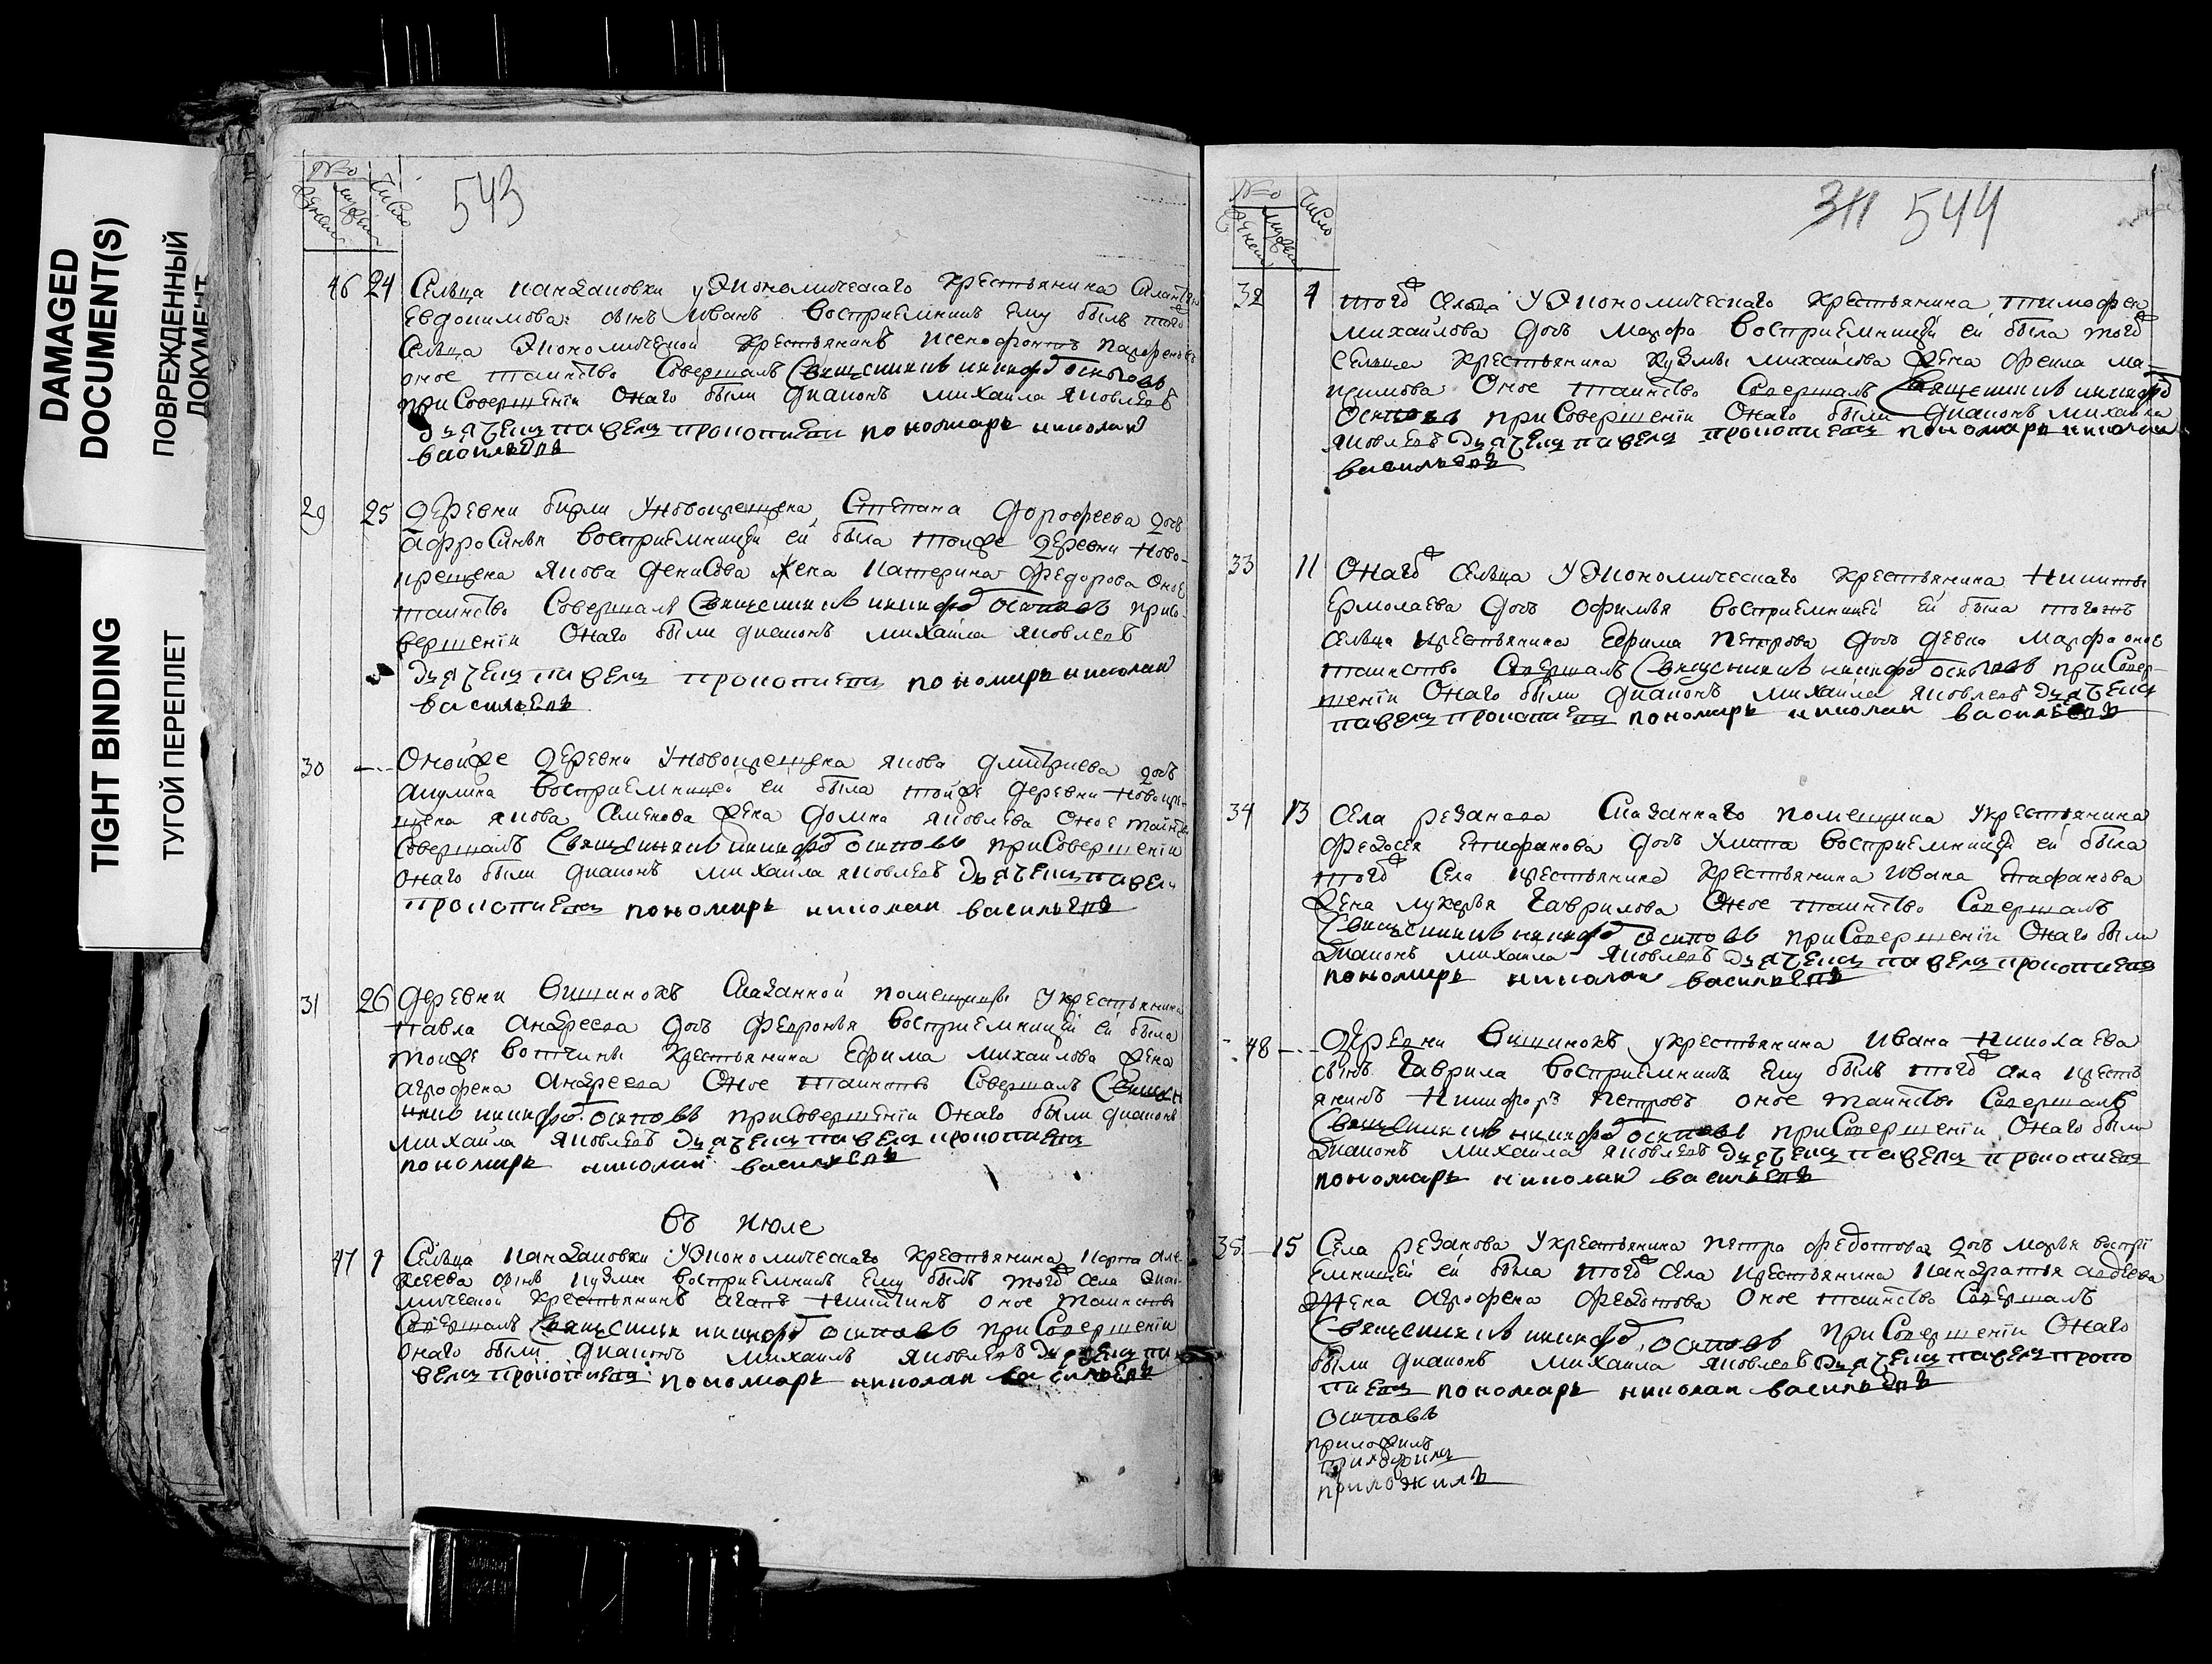 DAMAGED
DOCUMENT(S)
ПОВРЕЖДЕННЫЙ
ДОКУМЕНТ
TIGHT BINDING
ТУГОЙ ПЕРЕПЛЕТ
число
543
46 24 Сельца у Экономическаго Крестьянина
Евдокимова сынъ Иванъ Восприемникъ Ему былъ того
Сельца Экономической Крестьянинъ Ксенофонтъ
оное таинство Совершалъ Священникъ Осиповъ
при Совершенiи Онаго были диаконъ михаила яковлевъ
дьячецъ павелъ прокопиевъ пономарь николаи
васильевъ
29 25 Деревни бирли У новокрещена Степана Дорофеева дочь
Афросинья Восприемницеи еи была тоиже Деревни Ново-
крещена якова денисова жена катерина федорова оное
таинство Совершалъ Священникъ Осиповъ при Со-
вершенiи Онаго были диаконъ михаила яковлевъ
дьячецъ павелъ прокопиевъ пономарь николаи
васильевъ
30 Оноиже Деревни У новокрещена якова дмитриева дочь
акулина Восприемницеи еи была тоиже деревни Новокре-
щена якова Семенова жена домна яковлева Оное
Совершалъ Священникъ Осиповъ при Совершенiи
Онаго были диаконъ михаила яковлевъ дьячецъ павелъ
прокопиевъ пономарь николаи васильевъ
31 26 Деревни Вишинокъ Сказанной помещицы У крестьянина
Павла Андреева дочь Февронья восприемницеи еи была
тоиже вотчины Крестьянина Ефима Михаилова жена
агрофена Андреева Оное таинство Совершалъ
Осиповъ при Совершенiи Онаго были диаконъ
михаила яковлевъ дьячецъ павелъ прокопиевъ
пономарь николаи васильевъ
Въ Июле
47 1 Сельца У Экономическаго Крестьянина Але-
ксеева сынъ Кузма восприемникъ Ему былъ тогож села Эконо-
мической Крестьянинъ агапъ Никитинъ оное таинство
Совершалъ Осиповъ при Совершенiи
Онаго были диаконъ михаилъ яковлевъ дьячецъ па
велъ прокопиевъ пономарь николаи васильевъ
число
311 544
32 того Сельца У Экономическаго Крестьянина тимофея
михаилова дочь марфа восприемницеи еи была тогож
сельца Крестьянина Кузмы михаилова жена Фекла ма-
кимова Оное таинство Совершалъ Священникъ
Осиповъ при Совершенiи Онаго были диаконъ михаила
яковлевъ дьячецъ павелъ прокопиевъ пономарь николаи
васильевъ
33 11 Онагож Сельца У Экономическаго Крестьянина Никиты
Ермолаева дочь Офимья восприемницеи еи была тогожъ
сельца крестьянина Ефима петрова дочь девка марфа оное
таинство Совершалъ Священникъ Осиповъ при Совер-
шенiи Онаго были диаконъ михаила яковлевъ дьячецъ
павелъ прокопиевъ пономарь николаи васильевъ
34 13 Села резанова Сказаннаго помещика У крестьянина
федосея Епифанова дочь Улита Восприемницеи еи была
тогож Села крестьянина Крестьянина Ивана Епифанова
жена лукерья Гаврилова Оное таинство Совершалъ
Священникъ Осиповъ при Совершенiи Онаго были
Диаконъ михаила яковлевъ дьячецъ павелъ прокопиевъ
пономарь николаи васильевъ
48 Деревни Вишинокъ у крестьянина Ивана Николаева
сынъ Гаврила восприемникъ Ему былъ тогож села кресть
янинъ Никифоръ Петровъ оное таинство Совершалъ
Священникъ Осиповъ при Совершенiи Онаго были
Диаконъ михаила яковлевъ дьячецъ павелъ прокопиевъ
пономарь николаи васильевъ
35 15 Села резанова У крестьянина Петра Федотова дочь марья воспрi
емницеи еи была тогож села крестьянина Авдеева
Жена Агрофена Федотова Оное таинство Совершалъ
Священникъ Осиповъ при Совершенiи Онаго
были диаконъ михаила яковлевъ дьячецъ павелъ проко
пиевъ пономарь николаи васильевъ
Осиповъ
приложилъ
приложилъ